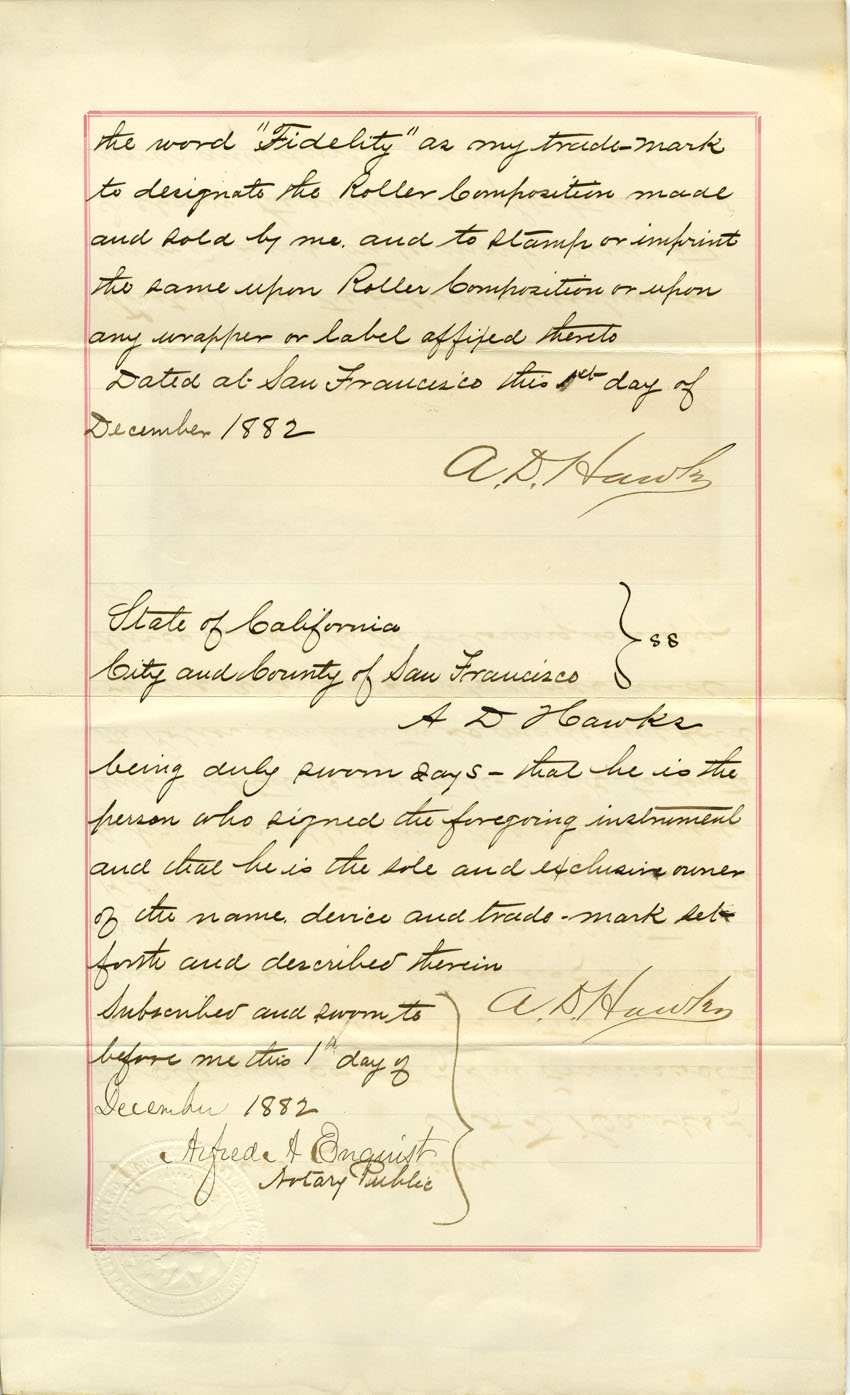 the word "Fidelity" as my trade-mark
to designate the Roller Composition made
and sold by me. and to stamp or imprint
the same upon Roller Composition or upon
any wrapper or label affixed thereto
Dated at San Francisco this 1st day of
December 1882
A. D. Hawks
State of California
City and County of San Francisco } ss
A D Hawks
being duly sworn says - that he is the
person who signed the foregoing instrument
and that he is the sole and exclusive owner
of the name. device and trade-mark set
forth and described therein
Subscribed and sworn to
A. D. Hawks
before me this 1st day of
December 1882
Alfred A Enquist
Notary Public